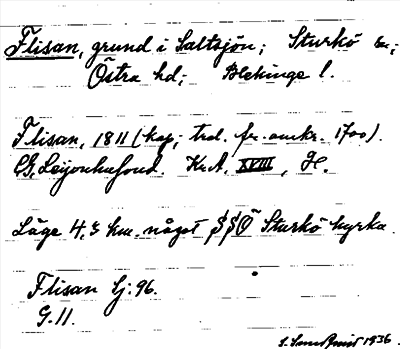 Flisan, grund i Saltsjön; Sturkö sn;
Östra hd; Blekinge l.
Flisan, 1811 (kop; trol. fr. omkr. 1700).
CG. Leijonhufvud. KrA. XVIII, H.
Läge 4,3 km. något SSÖ Sturkö kyrka
Flisan Sj: 96.
G. 11.
1936.